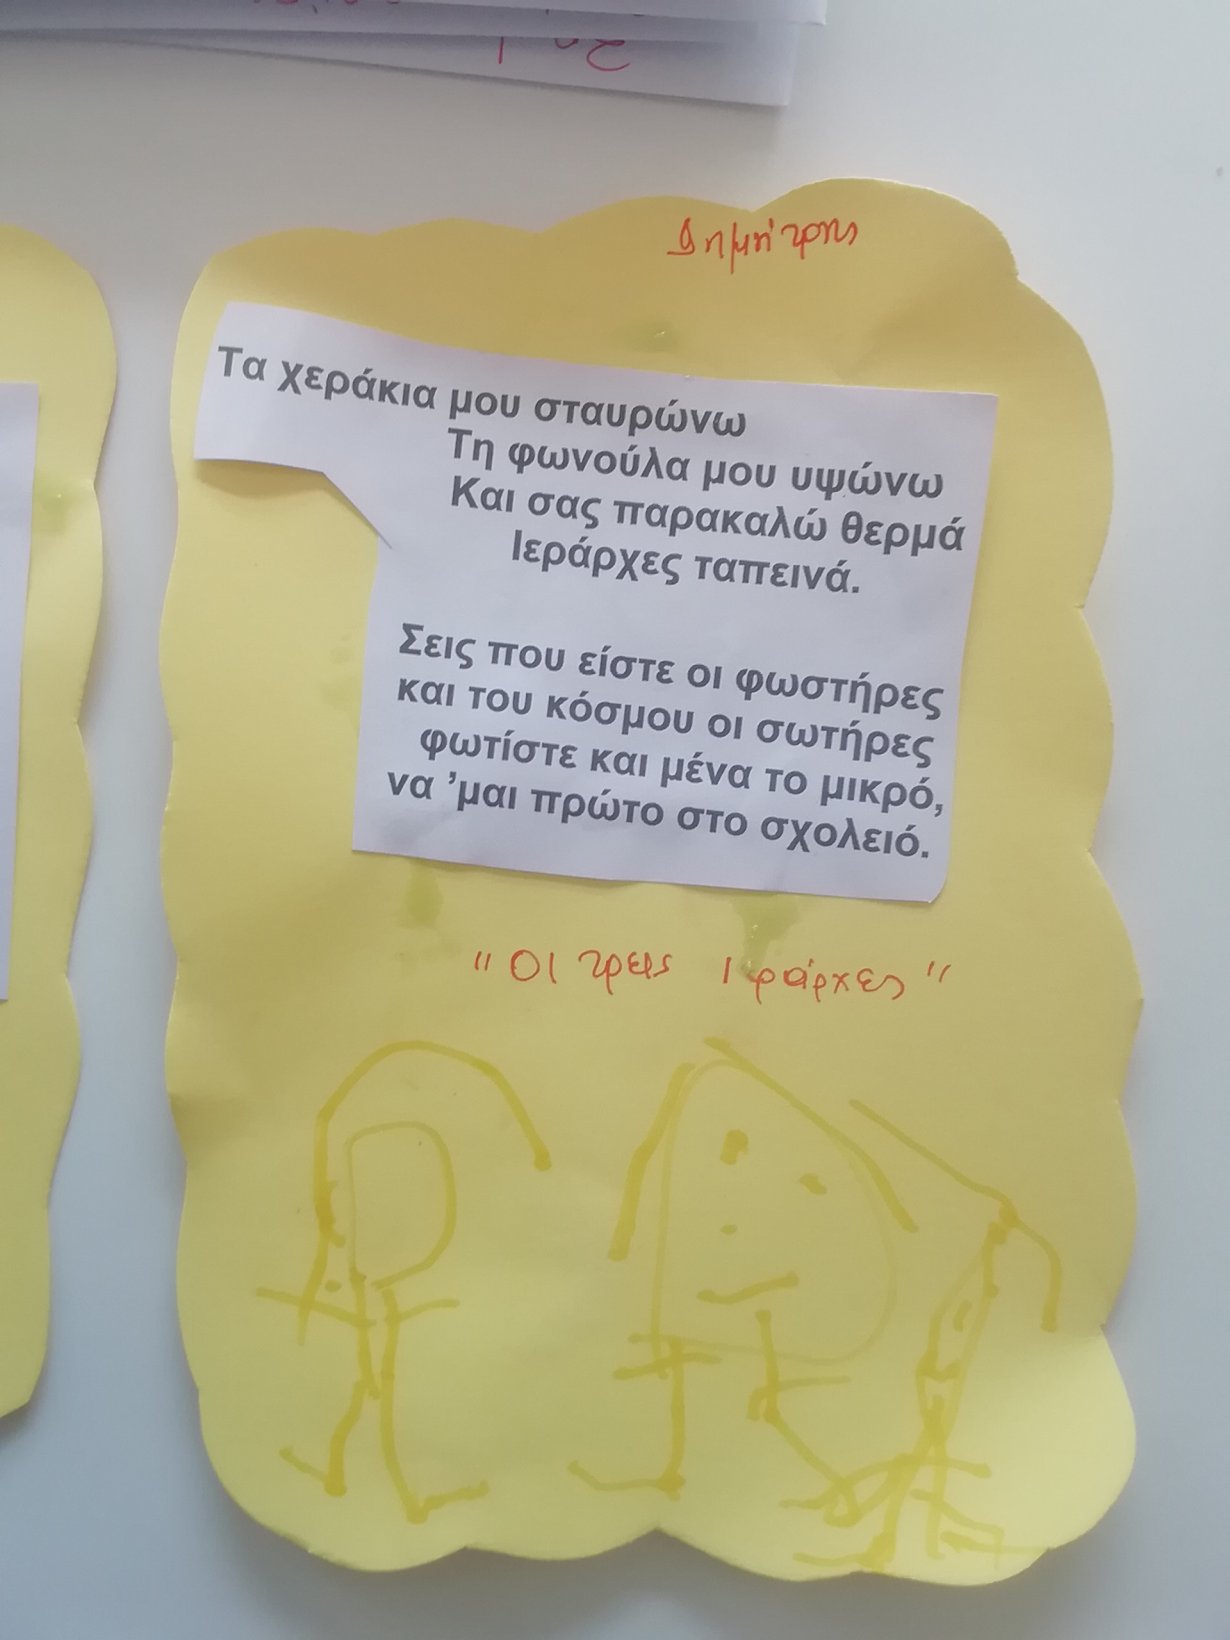 Δημήτρης
Τα χεράκια μου σταυρώνω
Τη φωνούλα μου υψώνω
Και σας παρακαλώ θερμά
Ιεράρχες ταπεινά.
Σεις που είστε οι φωστήρες
και του κόσμου οι σωτήρες
φωτίστε και μένα το μικρό,
να ’μαι πρώτο στο σχολειό.
"Οι τρεις Ιράρχες"